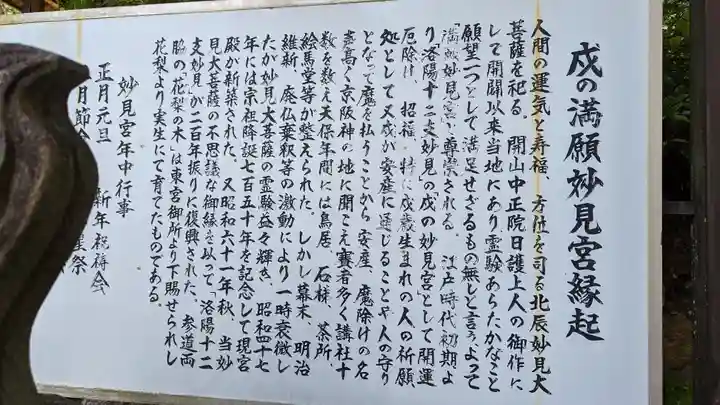 戌の満願妙見宮縁起
人間の運気と寿福、方位を司る北辰妙見大
菩薩を祀る。開山中正院日護上人の御作に
して開闢以来当地にあり霊験あらたかなこと
願望一つとして満足せざるもの無しと言うよって
「満願妙見宮」と尊崇される。江戸時代初期よ
り「洛陽十二支妙見の戌の妙見宮」として開運
厄除け、招福、特に戌歳生まれの人の祈願
処として又戌が安産に通じることや人の守り
となって魔を払うことから安産、魔除けの名
声高く京阪神の地に聞こえ賽者多く講社十
数を数え天保年間には鳥居、石様、茶所、
絵馬堂等が整えられた。しかし幕末、明治
維新、廃仏棄釈等の激動により一時衰微し
たが妙見大菩薩の霊験益々輝き、昭和四十七
年には宗祖降誕七百五十年を記念して現宮
殿が新築された。又昭和六十一年秋、当妙
見大菩薩の不思議な御縁を以って「洛陽十二
支妙見」が二百年振りに復興された。参道両
脇の「花梨の木」は東宮御所より下賜せられし
花梨より実生にて育てたものである。
妙見宮年中行事
正月元旦 新年祝祷会
月節 星祭